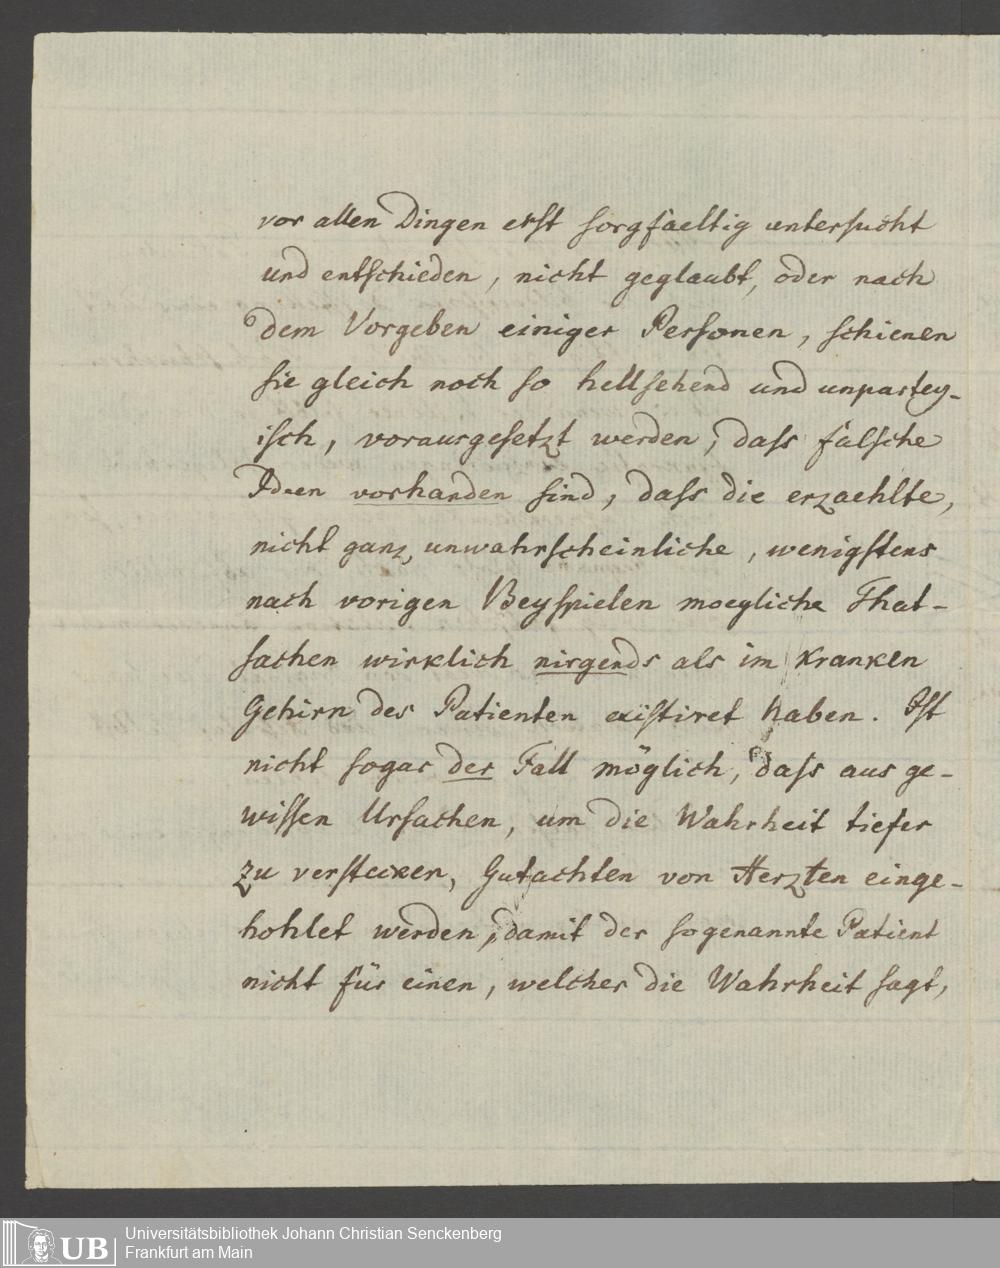 vor allen Dingen erst sorgfaeltig untersucht
und entschieden, nicht geglaubt, oder nach
dem Vorgeben einiger Personen, schienen
sie gleich noch so hellsehend und unpartey-
isch, vorausgesetzt werden, dass falsche
Ideen vorhanden sind, dass die erzaehlte,
nicht ganz unwahrscheinliche, wenigstens
nach vorigen Beyspielen moegliche That-
sachen wirklich nirgends als im Kranken
Gehirn des Patienten existiret haben. Ist
nicht sogar der Fall möglich, dass aus ge-
wissen Ursachen, um die Wahrheit tiefer
zu verstecken, Gutachten von Aerzten einge-
hohlet werden, damit der sogenannte Patient
nicht für einen, welcher die Wahrheit sagt,
UB
Universitätsbibliothek Johann Christian Senckenberg
Frankfurt am Main